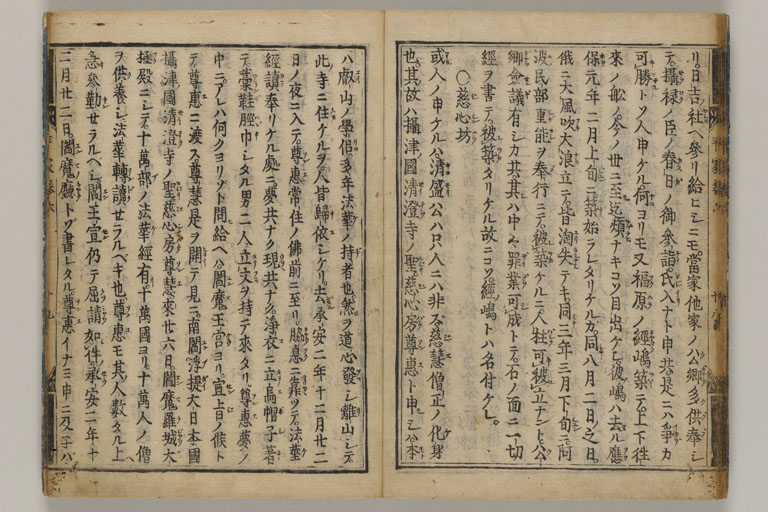 リ。日吉ノ社ヘ參リ給ヒシニモ。當家他家ノ公卿多供奉シ
テ。攝祿ノ臣ノ春日ノ御參詣。氏入ナト申共。是ニハ爭カ
可勝トソ人申ケル。何ヨリモ又福原ノ經嶋築テ。上下往
來ノ舩ノ今ノ世ニ至迄煩ナキコソ目出ケレ。彼嶋ハ去ル應
保元年二月上旬ニ築始ラレタリケルカ。同八月二日之日。
俄ニ大風吹大浪立テ。皆淘失テキ。同三年三月下旬ニ阿
波民部重能ヲ奉行ニテ。被築ケルニ。人柱可被立ナント。公
卿僉議有シカ共。其ハ中々罪業可成トテ。石ノ面ニ一切
經ヲ書テ。被築タリケル故ニコソ經嶋トハ名付ケレ。
〇慈心坊
或人ノ申ケルハ。清盛公ハ只人ニハ非ス。慈慧僧正ノ化身
也。其故ハ攝津國清澄寺ノ聖慈心房尊惠ト申シハ。本
ハ叡山ノ學侶。多年法華ノ持者也。然ヲ道心發シ離山シテ。
此寺ニ住ケルヲ。人皆歸依シケリ。去承安二年十二月廿二
日ノ夜ニ入テ。尊惠常住ノ佛前ニ至リ。脇息ニ靠ツテ。法華
經讀奉リケル處ニ。夢共ナク現共ナク。淨衣ニ立烏帽子著
テ。藁鞋脛巾シタル男二人。立文ヲ持テ來タリ。尊惠夢ノ
中ニ。アレハ何クヨリゾト問給ヘハ。閻魔王宮ヨリ。宣旨ノ候ト
テ尊惠ニ渡ス。尊慧是ヲ開テ見ニ。南閻浮提大日本國
攝津國清澄寺ノ聖慈心房尊慧。來廿六日閻魔羅城大
極殿ニシテ。十萬部ノ法華經有。十萬國ヨリ。十萬人ノ僧
ヲ供養シ。法華轉讀セラルベキ也。尊惠モ其人數タル上ヘ
急參勤セラルヘシ。閻王宣仍テ屈請如件。承安二年十
二月廿二日。閻魔廳トゾ書レタル。尊惠イナミ申ニ及子ハ